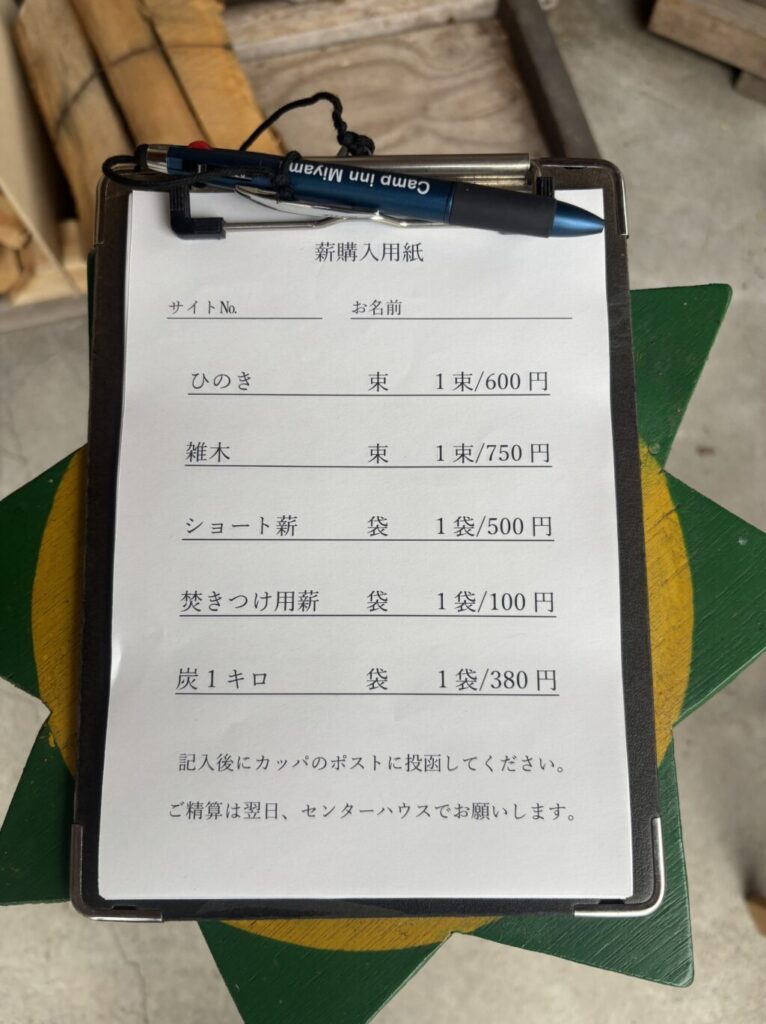 Camp inn Miyam
薪購入用紙
サイト№ お名前
ひのき 束 1束/600円
雑木 束 1束/750円
ショート薪 袋 1袋/500円
焚きつけ用薪 袋 1袋/100円
炭1キロ 袋 1袋/380円
記入後にカッパのポストに投函してください。
ご精算は翌日、センターハウスでお願いします。